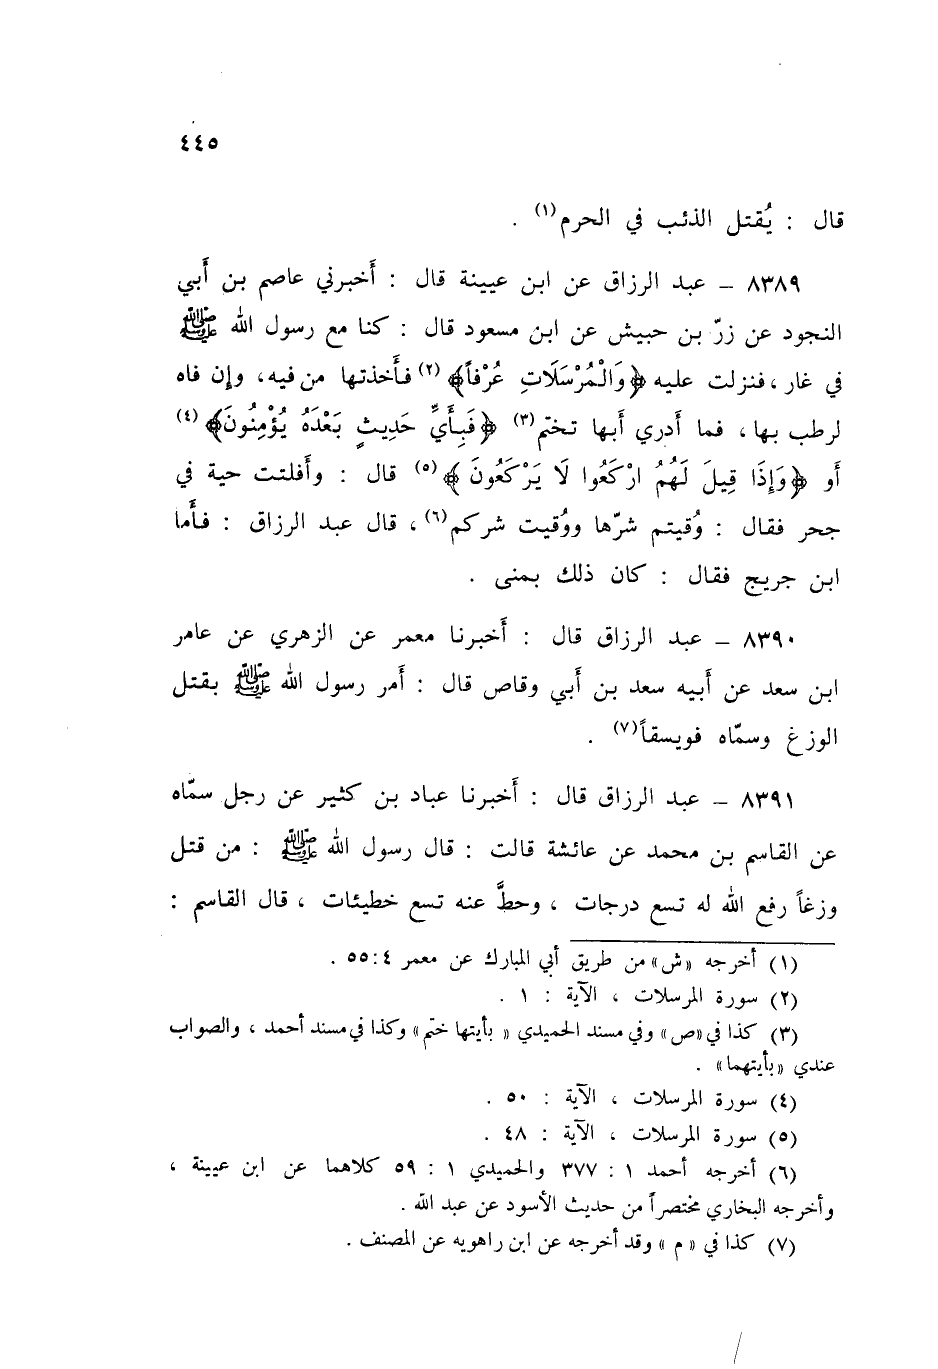 ٤٤٥
قال : يُقتل الذئب في الحرم(١) .
٨٣٨٩ – عبد الرزاق عن ابن عيينة قال : أَخبرني عاصم بن أَبي
النجود عن زرّ بن حبيش عن ابن مسعود قال : كنا مع رسول الله ﷺ
في غار ، فنزلت عليه ﴿وَالْمُرْسَلَاتِ عُرْفاً﴾(٢) فأَخذتها من فيه، وإن فاه
لرطب بها ، فما أَدري أَبها تختم(٣) ﴿فَبِأَيِّ حَدِيثٍ بَعْدَهُ يُؤْمِنُونَ﴾(٤)
أو ﴿وَإِذَا قِيلَ لَهُمُ ارْكَعُوا لَا يَرْكَعُونَ ﴾(٥) قال : وأَفلتت حية في
جحر فقال : وُقيتم شرّها ووُقيت شركم(٦) ، قال عبد الرزاق : فأَما
ابن جريج فقال : كان ذلك بمنى .
٨٣٩٠ – عبد الرزاق قال : أَخبرنا معمر عن الزهري عن عامر
ابن سعد عن أَبيه سعد بن أَبي وقاص قال : أَمر رسول الله ﷺ بقتل
الوزغ وسمّاه فويسقاً(٧) .
٨٣٩١ – عبد الرزاق قال : أَخبرنا عباد بن كثير عن رجل سمّاه
عن القاسم بن محمد عن عائشة قالت : قال رسول الله ﷺ : من قتل
وزغاً رفع الله له تسع درجات ، وحطَّ عنه تسع خطيئات ، قال القاسم :
(١) أخرجه «ش» من طريق أبي المبارك عن معمر ٤:٥٥ .
(٢) سورة المرسلات ، الآية : ١ .
(٣) كذا في «ص» وفي مسند الحميدي « بأيتها ختم» وكذا في مسند أحمد ، والصواب
عندي «بأيتهما» .
(٤) سورة المرسلات ، الآية : ٥٠ .
(٥) سورة المرسلات ، الآية : ٤٨ .
(٦) أخرجه أحمد ١ : ٣٧٧ والحميدي ١ : ٥٩ كلاهما عن ابن عيينة ،
وأخرجه البخاري مختصراً من حديث الأسود عن عبد الله .
(٧) كذا في « م » وقد أخرجه عن ابن راهويه عن المصنف .